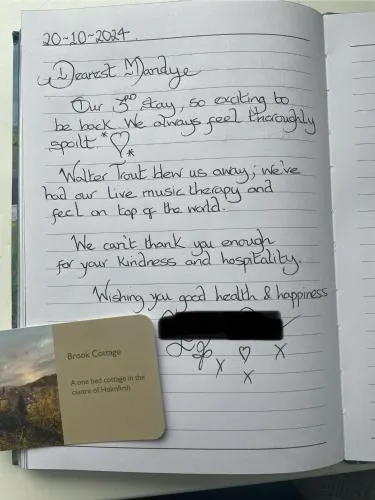 20-10-2024.
Dearest Mandye
Our 3RD stay, so exciting to
be back. We always feel thoroughly
spoilt.
Walter Trout blew us away; we've
had our live music therapy and
feel on top of the world.
We can't thank you enough
for your kindness and hospitality.
Wishing you good health & happiness
X X X
Brook Cottage
A one bed cottage in the
centre of Holmfirth